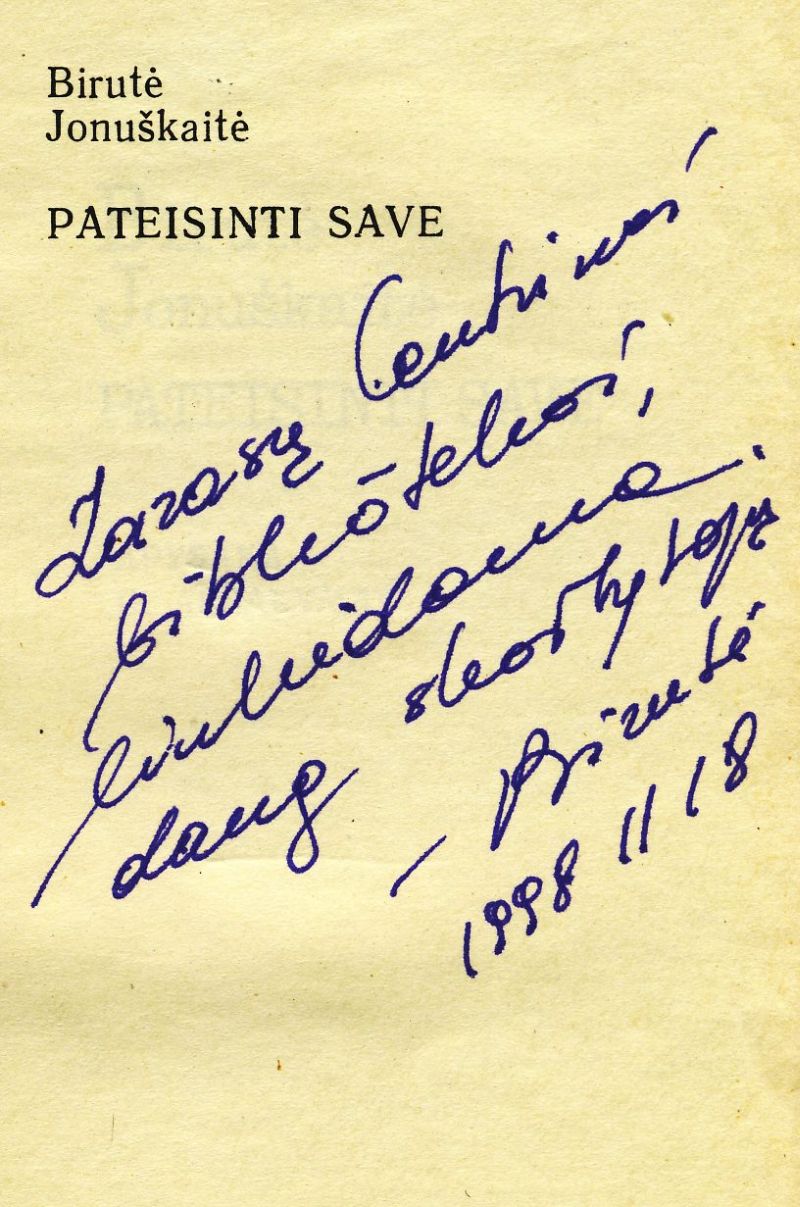 Birutė
Jonuškaitė
PATEISINTI SAVE
Zarasų Centrinei
bibliotekai,
linkėdama
daug skaitytojų
– Birutė
1998 11 18